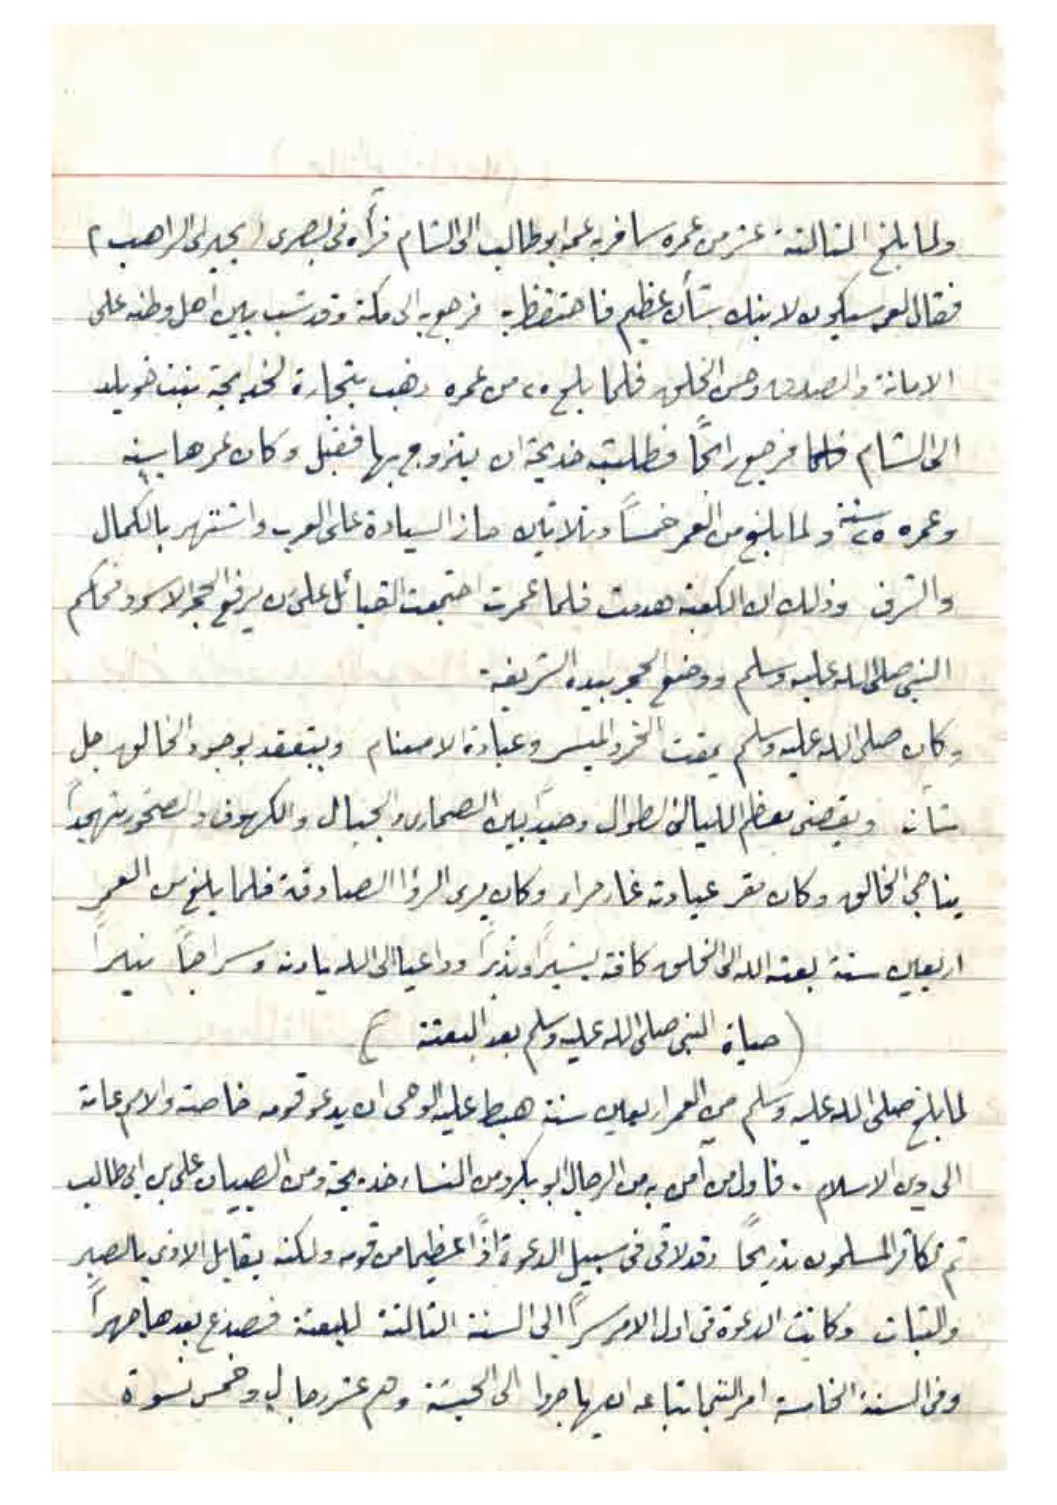 ولما بلغ الثالثة عشر من عمره سافر به عمه ابو طالب الى الشام فرأه فى بصرى ( بحيرى الراهب )
فقال لعمه سيكون لابنك شأن عظيم فاحتفظ به فرجع به الى مكة وقد شب بين اهل وطنه على
الامانة والصدق وحسن الخلق فلما بلغ ٢٥ من عمره ذهب بتجارة لخديجة بنت خويلد
الى الشام فرجع رابحًا فطلبته خديجة ان يتزوج بها فقبل وكان عمرها سنه
وعمره ٢٥ سنة ولما بلغ من العمر خمسًا وثلاثين حاز السيادة على العرب واشتهر بالكمال
والشرف وذلك ان الكعبة هدمت فلما عمرت اجتمعت القبائل على من يرفع الحجر الاسود فحاكم
النبى صلى الله عليه وسلم ووضع الحجر بيده الشريفة
وكان صلى الله عليه وسلم يمقت الخمر والميسر وعبادة الاصنام ويعتقد بوجود الخالق جل
شأنه ويقضى معظم الليالى الطوال وحيدًا بين الصحارى والجبال والكهوف والصخور متهجدًا
يناجى الخالق وكان مقر عبادته غار حراء وكان يرى الرؤا الصادقة فلما بلغ من العمر
اربعين سنة بعثه الله الى الخلق كافه بشيرًا ونذيرًا وداعيا الى الله باذنه وسراجًا منيرًا
( حياة النبى صلى الله عليه وسلم بعد البعثة )
لما بلغ صلى الله عليه وسلم من العمر اربعين سنة هبط عليه الوحى ان يدعو قومه خاصة والامم عامة
الى دين الاسلام . فاول من آمن به من الرجال ابو بكر ومن النساء خديجة ومن الصبيان على بن ابى طالب
ثم تكاثر المسلمون تدريجًا وقد لاقى فى سبيل الدعوة اذًا عظيما من قومه ولكنه يقابل الاذى بالصبر
والثبات وكانت الدعوة فى اول الامر سرًا الى السنة الثالثة للبعثة فصدع بعدها جهرًا
وفى السنة الخامسة امر النبى اتباعه ان يهاجروا الى الحبشة وهم عشر رجال وخمس نسوة